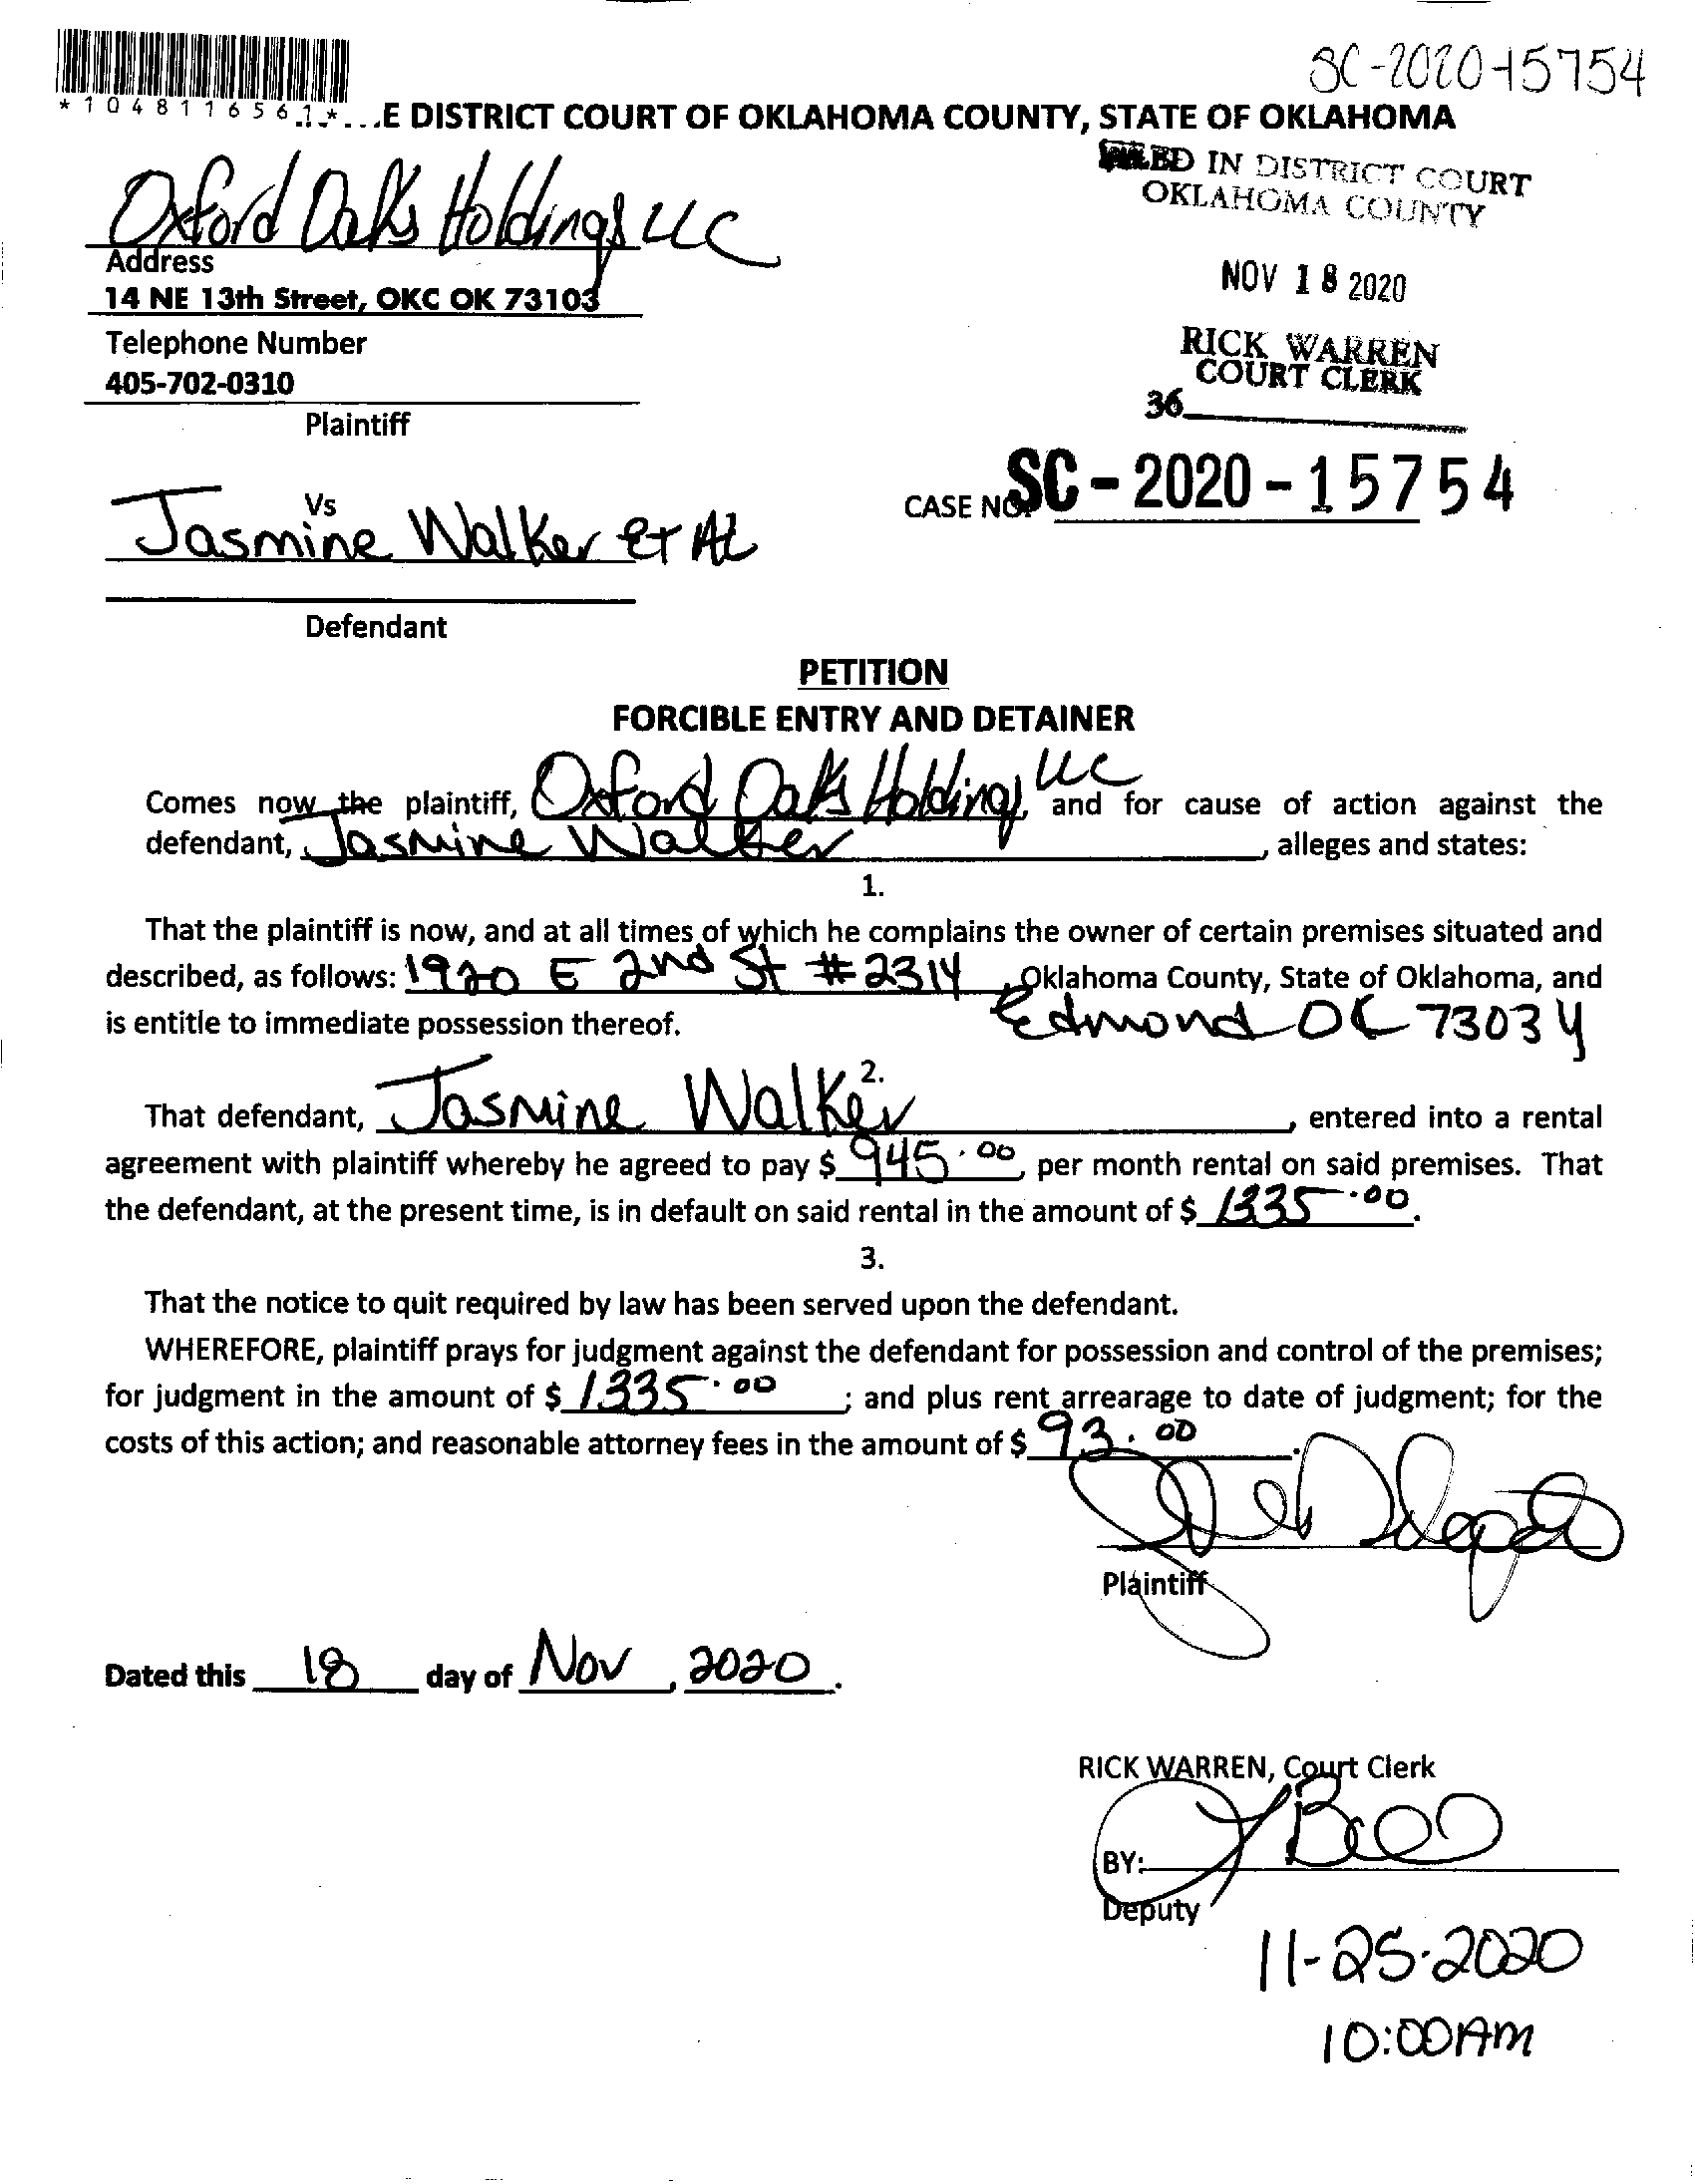 SC-2020-15754
*1048116561*...E DISTRICT COURT OF OKLAHOMA COUNTY, STATE OF OKLAHOMA
FILED IN DISTRICT COURT
OKLAHOMA COUNTY
Oxford Oaks Holdings LLC
Address
14 NE 13th Street, OKC OK 73103
NOV 18 2020
Telephone Number
405-702-0310
RICK WARREN
COURT CLERK
36
Plaintiff
Vs
CASE NO. SC-2020-15754
Jasmine Walker et AL
Defendant
PETITION
FORCIBLE ENTRY AND DETAINER
Comes now the plaintiff, Oxford Oaks Holdings, LLC and for cause of action against the
defendant, Jasmine Walker, alleges and states:
1.
That the plaintiff is now, and at all times of which he complains the owner of certain premises situated and
described, as follows: 1920 E 2nd St #2314, Oklahoma County, State of Oklahoma, and
is entitle to immediate possession thereof. Edmond OK 73034
2.
That defendant, Jasmine Walker, entered into a rental
agreement with plaintiff whereby he agreed to pay $ 945.00, per month rental on said premises. That
the defendant, at the present time, is in default on said rental in the amount of $ 1335.00.
3.
That the notice to quit required by law has been served upon the defendant.
WHEREFORE, plaintiff prays for judgment against the defendant for possession and control of the premises;
for judgment in the amount of $ 1335.00; and plus rent arrearage to date of judgment; for the
costs of this action; and reasonable attorney fees in the amount of $ 93.00.
Plaintiff
Dated this 18 day of Nov, 2020.
RICK WARREN, Court Clerk
BY:
Deputy
11-25-2020
10:00AM